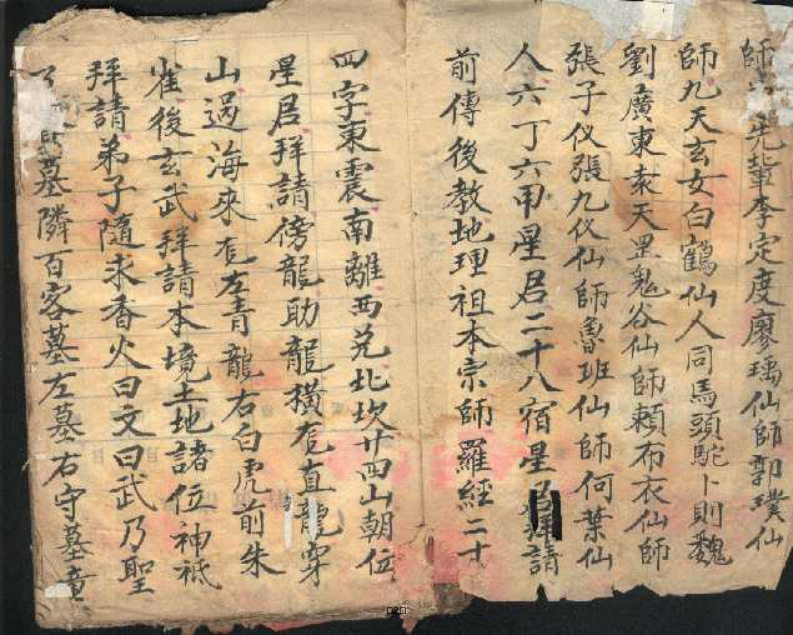 師　先輩李定度廖瑀仙師郭璞仙
師九天玄女白鶴仙人同馬頭駝卜則魏
劉廣東袁天罡鬼谷仙師賴布衣仙師
張子仪張九仪仙師魯班仙師何葉仙
人六丁六甲星君二十八宿星君拜請
前傳後教地理祖本宗師羅經二十
四字東震南離西兑北坎廿四山朝位
星君拜請傍龍助龍橫龍直龍穿
山過海來龍左青龍右白虎前朱
雀後玄武拜請本境土地諸位神祇
拜請弟子隨求香火曰文曰武乃聖
墓隣百客墓左墓右守墓童